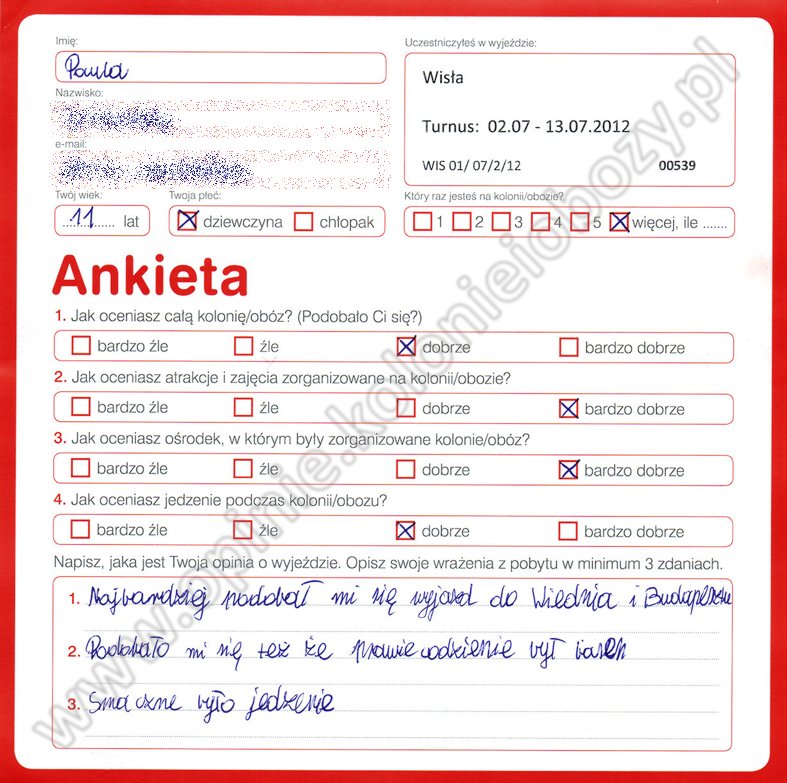 Imię:
Paula
Nazwisko:
e-mail:
Twój wiek:
11 lat
Twoja płeć:
dziewczyna chłopak
Uczestniczyłeś w wyjeździe:
Wisła
Turnus: 02.07 - 13.07.2012
WIS 01/ 07/2/12 00539
Który raz jesteś na kolonii/obozie?
1 2 3 4 5 więcej, ile .......
Ankieta
1. Jak oceniasz całą kolonię/obóz? (Podobało Ci się?)
bardzo źle źle dobrze bardzo dobrze
2. Jak oceniasz atrakcje i zajęcia zorganizowane na kolonii/obozie?
bardzo źle źle dobrze bardzo dobrze
3. Jak oceniasz ośrodek, w którym były zorganizowane kolonie/obóz?
bardzo źle źle dobrze bardzo dobrze
4. Jak oceniasz jedzenie podczas kolonii/obozu?
bardzo źle źle dobrze bardzo dobrze
Napisz, jaka jest Twoja opinia o wyjeździe. Opisz swoje wrażenia z pobytu w minimum 3 zdaniach.
1. Najbardziej podobał mi się wyjazd do Wiednia i Budapesztu
2. Podobało mi się też że prawie codzienie był basen
3. Smaczne było jedzenie
www.opinie.kolonieiobozy.pl